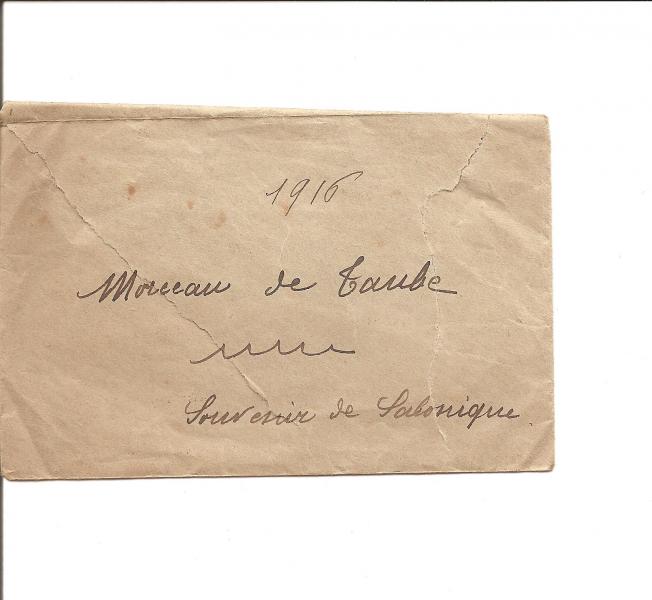 1916
Morceau de Taube
Souvenir de Salonique